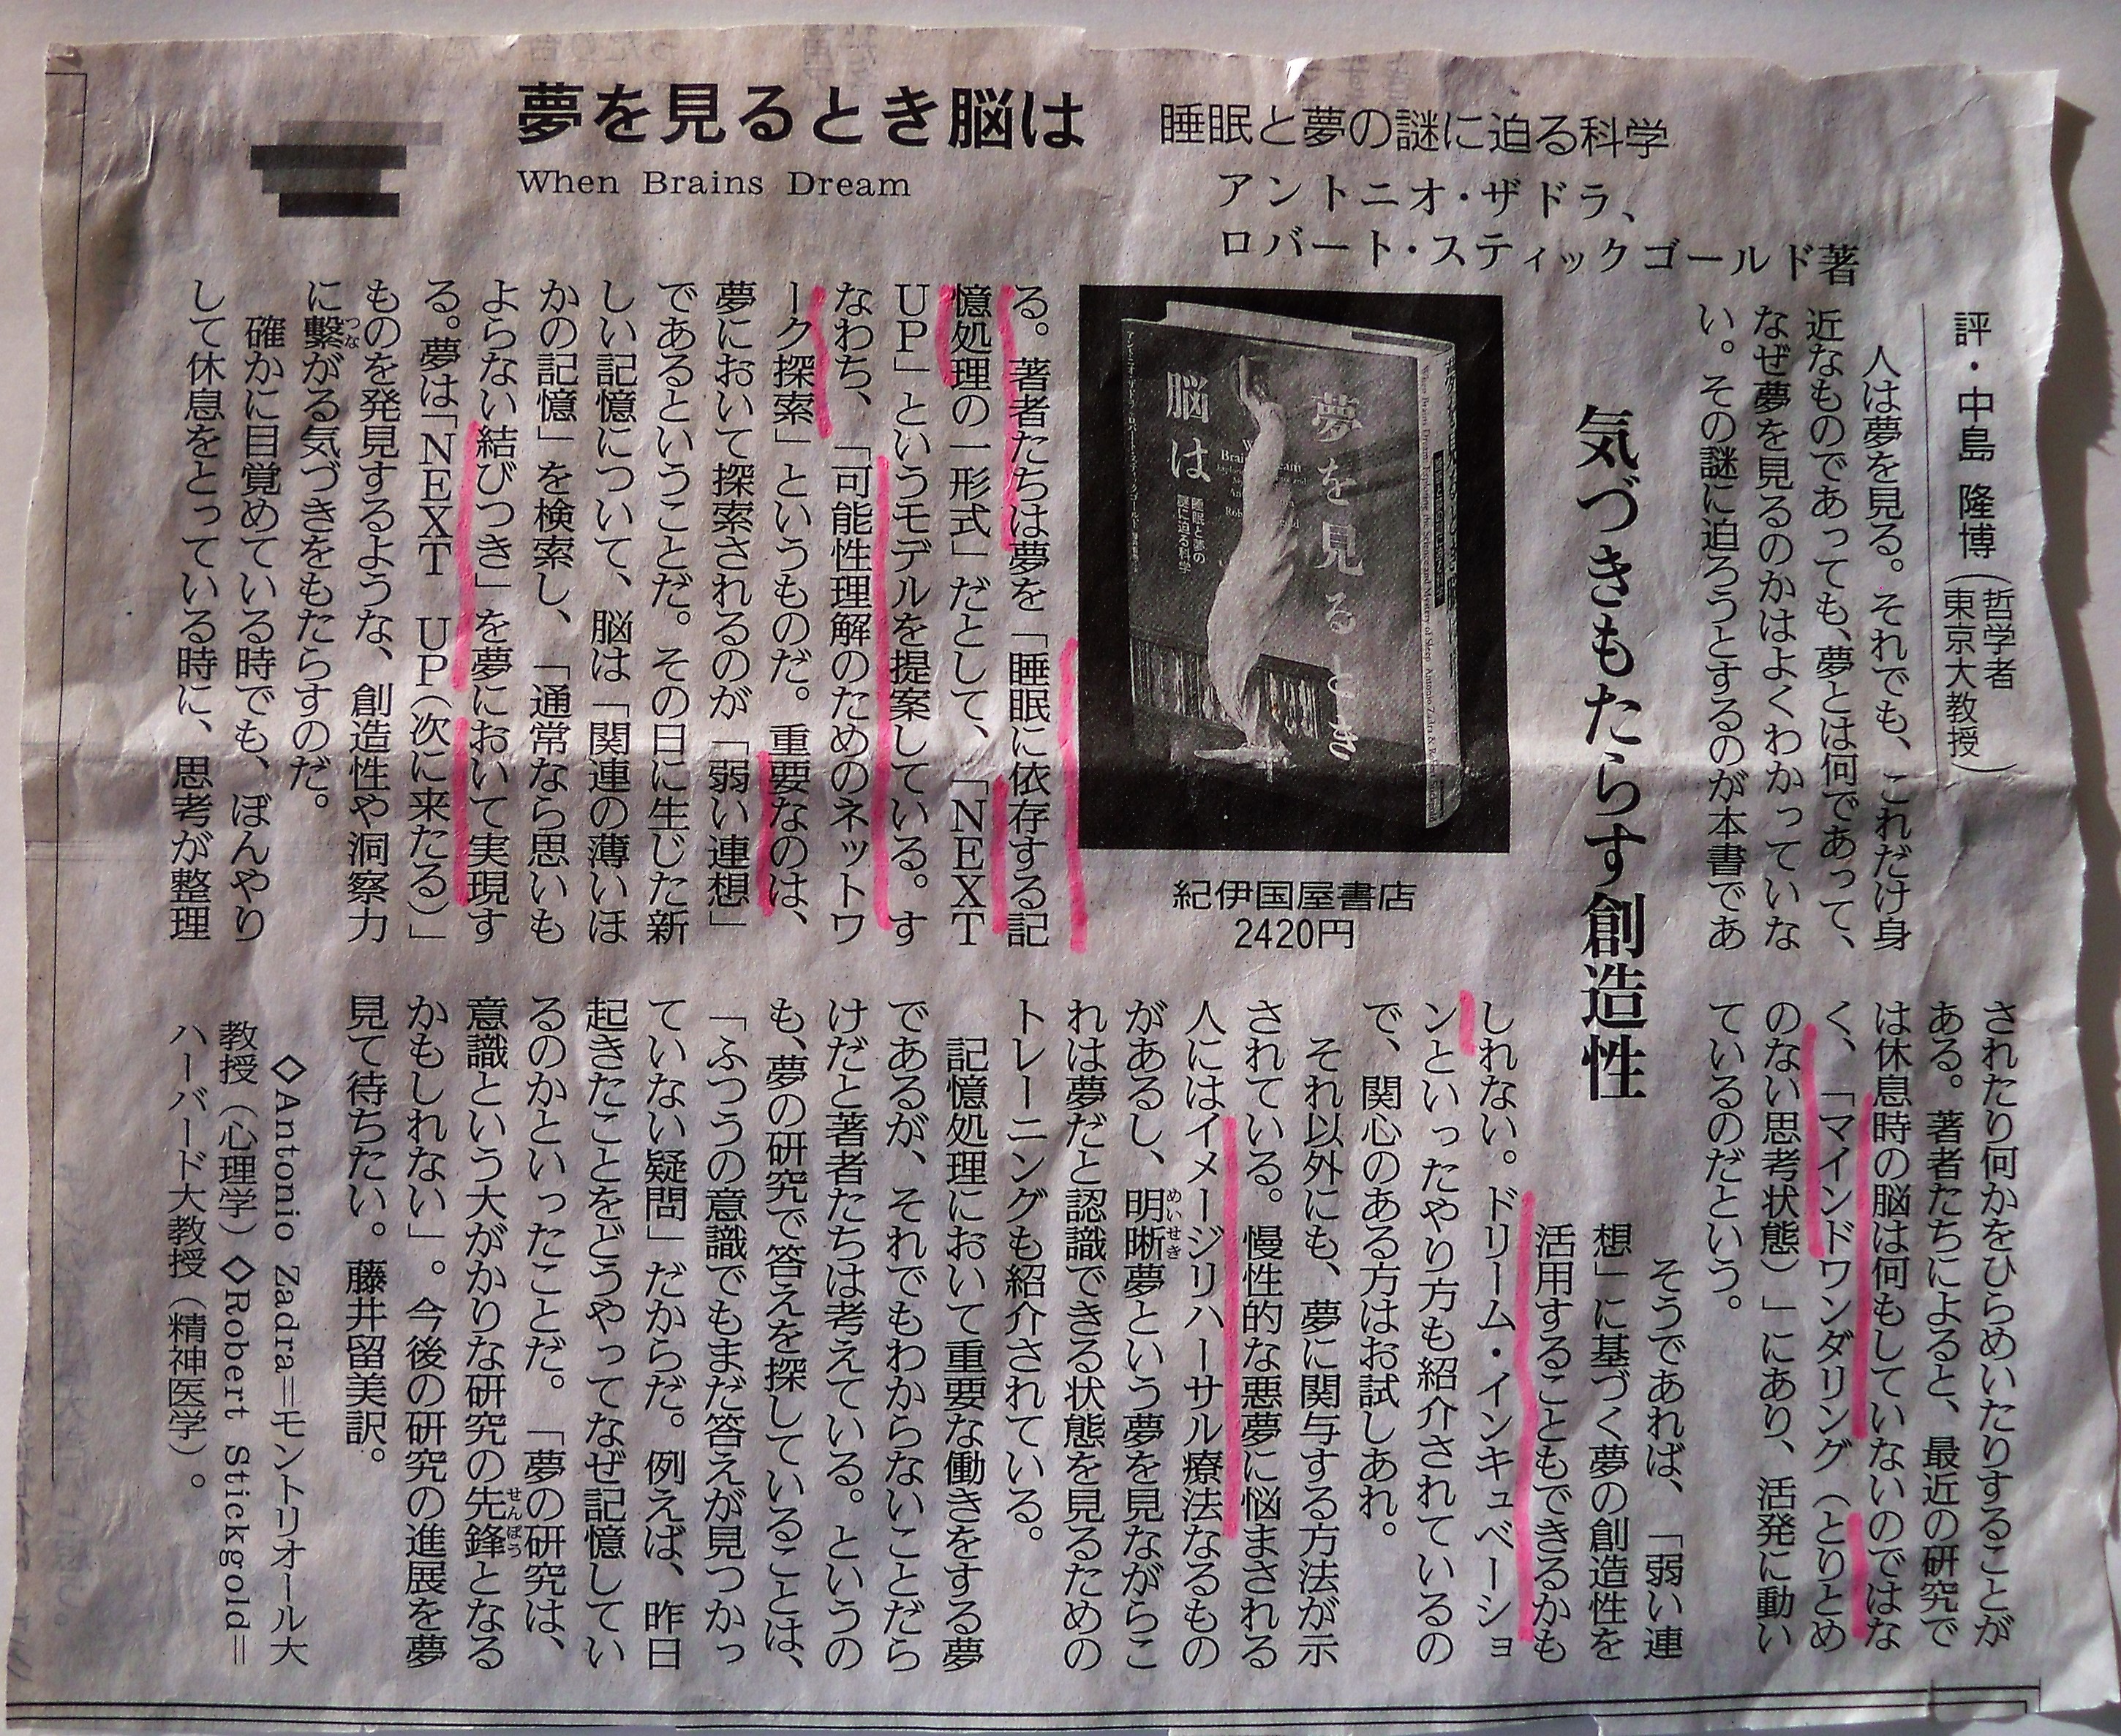 夢を見るとき脳は
睡眠と夢の謎に迫る科学
When Brains Dream
アントニオ・ザドラ、
ロバート・スティックゴールド著
評・中島 隆博(哲学者
東京大教授)
気づきもたらす創造性
人は夢を見る。それでも、これだけ身
近なものであっても、夢とは何であって、
なぜ夢を見るのかはよくわかっていな
い。その謎に迫ろうとするのが本書であ
脳は
夢を見るとき
睡眠と夢の
謎に迫る科学
紀伊国屋書店
2420円
る。著者たちは夢を「睡眠に依存する記
憶処理の一形式」だとして、「NEXT
UP」というモデルを提案している。す
なわち、「可能性理解のためのネットワ
ーク探索」というものだ。重要なのは、
夢において探索されるのが「弱い連想」
であるということだ。その日に生じた新
しい記憶について、脳は「関連の薄いほ
かの記憶」を検索し、「通常なら思いも
よらない結びつき」を夢において実現す
る。夢は「NEXT UP(次に来たる)」
ものを発見するような、創造性や洞察力
に繫つながる気づきをもたらすのだ。
確かに目覚めている時でも、ぼんやり
して休息をとっている時に、思考が整理
されたり何かをひらめいたりすることが
ある。著者たちによると、最近の研究で
は休息時の脳は何もしていないのではな
く、「マインドワンダリング(とりとめ
のない思考状態)」にあり、活発に動い
ているのだという。
そうであれば、「弱い連
想」に基づく夢の創造性を
活用することもできるかも
しれない。ドリーム・インキュベーショ
ンといったやり方も紹介されているの
で、関心のある方はお試しあれ。
それ以外にも、夢に関与する方法が示
されている。慢性的な悪夢に悩まされる
人にはイメージリハーサル療法なるもの
があるし、明晰めいせき夢という夢を見ながらこ
れは夢だと認識できる状態を見るための
トレーニングも紹介されている。
記憶処理において重要な働きをする夢
であるが、それでもわからないことだら
けだと著者たちは考えている。というの
も、夢の研究で答えを探していることは、
「ふつうの意識でもまだ答えが見つかっ
ていない疑問」だからだ。例えば、昨日
起きたことをどうやってなぜ記憶してい
るのかといったことだ。「夢の研究は、
意識という大がかりな研究の先鋒せんぽうとなる
かもしれない」。今後の研究の進展を夢
見て待ちたい。藤井留美訳。
◇Antonio Zadra=モントリオール大
教授(心理学)◇Robert Stickgold=
ハーバード大教授(精神医学)。